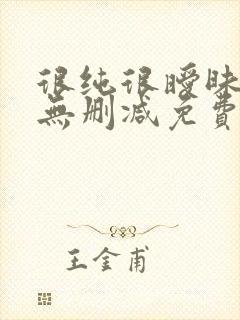 很纯很暧昧
無删减免費
王金甫